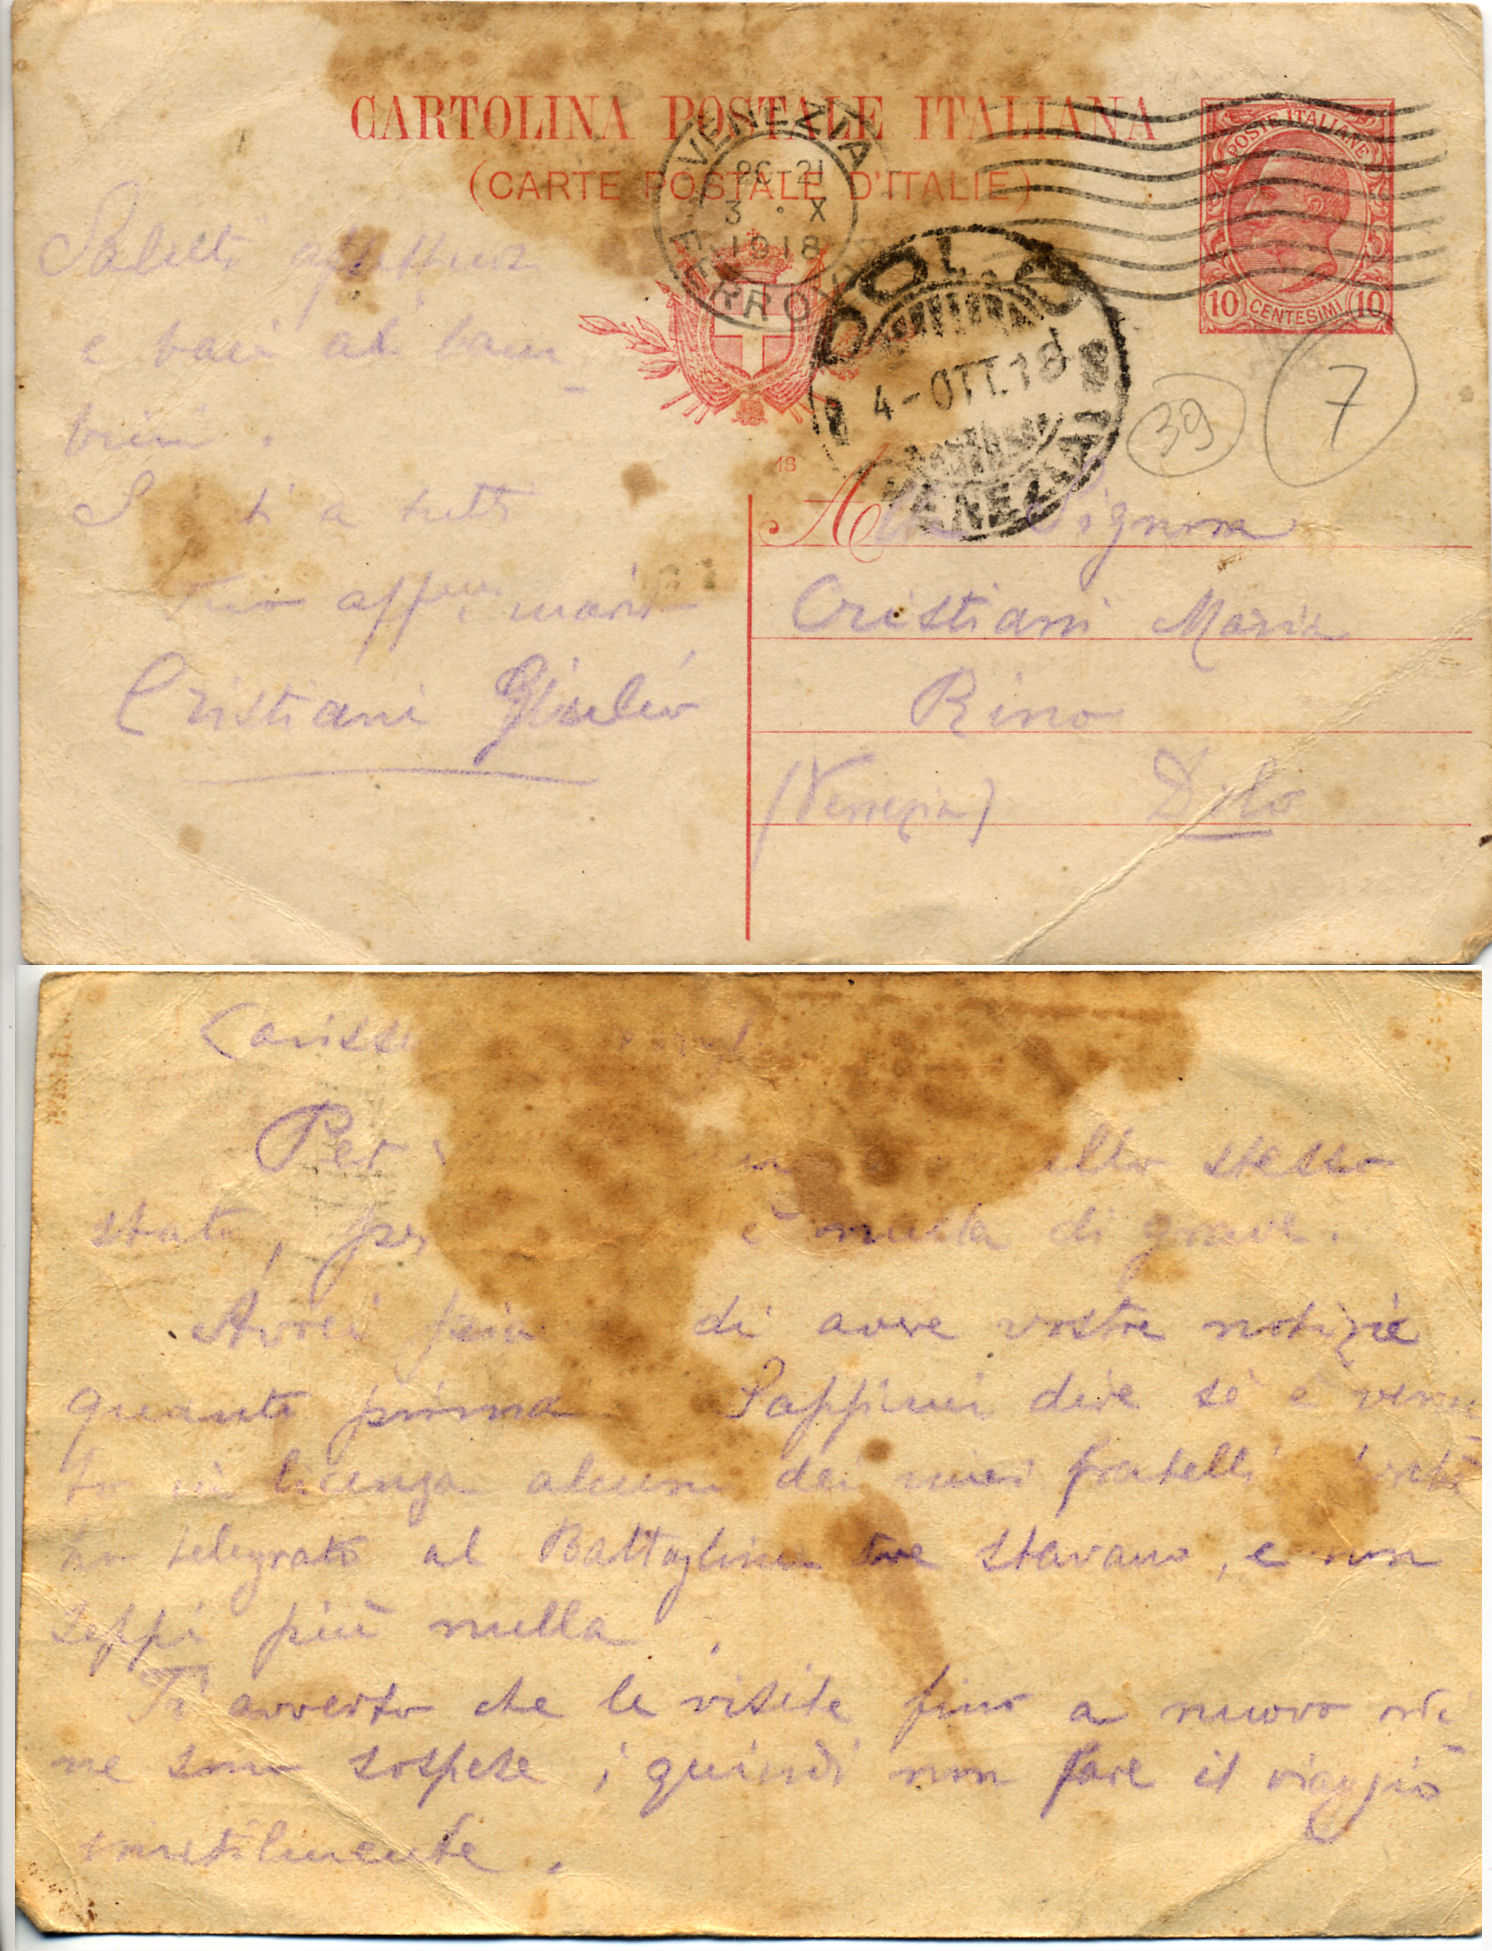 CARTOLINA POSTALE ITALIANA
(CARTE POSTALE D'ITALIE)
VENEZIA
21
3 · X
1918
FERROVIA
POSTE ITALIANE
10 CENTESIMI 10
DOLO
4-OTT.18
VENEZIA
39
7
18
Saluti affettuosi
e baci ai bam
bini.
a tutti
Tuo aff.mo marito
Cristiani Giulio
A Signora
Cristiani Maria
Rino
(Venezia) Dolo
Per stesso
stato, è nulla di grave.
Avrei di avere vostre notizie
quanto prima Sappimi dire se è venu
to in licenza alcuni dei miei fratelli
ho telegrato al Battaglione ove stavano, e non
seppi più nulla.
Ti avverto che le visite fino a nuovo ordi
ne sono sospese, quindi non fare il viaggio
inutilmente.